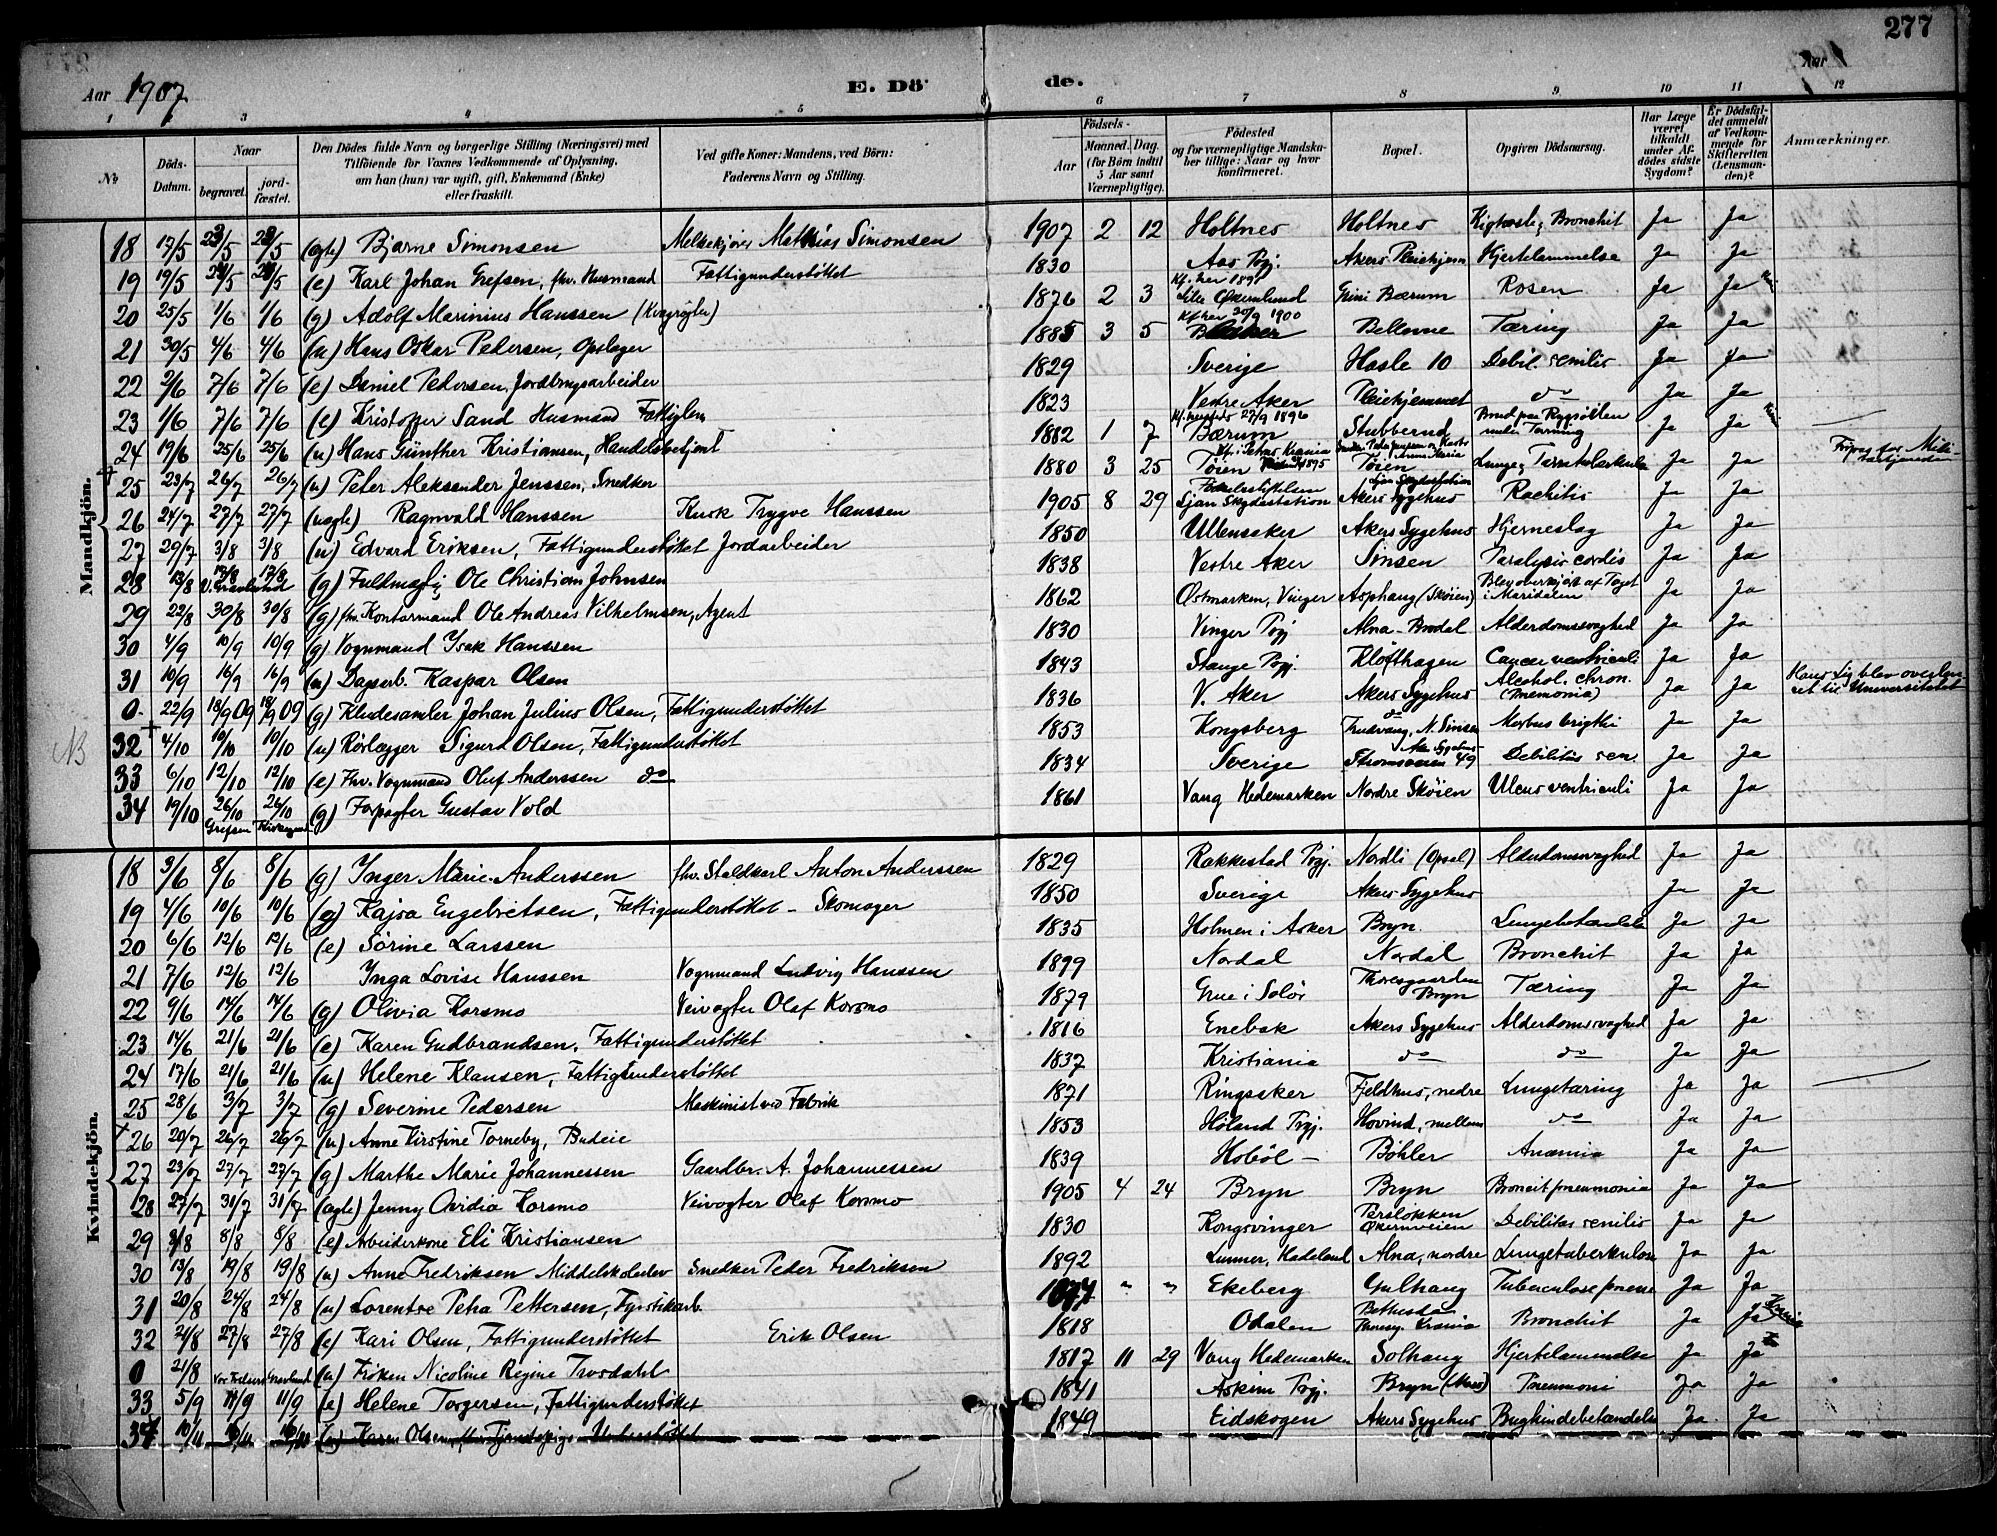 277
Aar 1907 E. Dö de. Aar
1 3 4 5 6 7 8 9 10 11 12
No Döds-Datum. Naar begravet. jord-fæstet. Den Dödes fulde Navn og borgerlige Stilling (Næringsvei) med Tilföiende for Voxnes Vedkommende af Oplysning, om han (hun) var ugift, gift, Enkemand (Enke) eller fraskilt. Ved gifte Koner: Mandens, ved Börn: Faderens Navn og Stilling. Födsels- Aar Maaned. Dag. (for Börn indtil 5 Aar samt Værnepligtige). Födested og for værnepligtige Mandskaber tillige: Naar og hvor konfirmeret. Bopæl. Opgiven Dödsaarsag. Har Læge været tilkaldt under Afdödes sidste Sygdom? Er Dödsfaldet anmeldt af Vedkommende for Skifteretten (Lensmanden)? Anmærkninger.
Mandkjön.
18 17/5 23/5 23/5 (ægte) Bjarne Simonsen Melkekjører Mathias Simonsen 1907 2 12 Holtnes Holtnes Kighoste, Bronchit Ja Ja
19 19/5 24/5 24/5 (e) Karl Johan Grefsen, fhv. Husmand Fattigunderstøttet 1830 Aas Pgj. Akers Pleiehjem Hjertelammelse Ja Ja
20 25/5 1/6 1/6 (g) Adolf Marinius Hanssen (Kvægrøgter) 1876 2 3 Lille Økernlund Grini Bærum Rosen Ja Ja
21 30/5 4/6 4/6 (u) Hans Oskar Pedersen, Opslager 1885 3 5 Kf. her 30/9 1900 Bellevue Tæring Ja Ja
22 2/6 7/6 7/6 (e) Daniel Pedersen, Jordbrugsarbeider 1829 Sverige Hasle 10 Debil. senilis Ja Ja
23 1/6 7/6 7/6 (e) Kristoffer Sand Husmand Fattiglem 1823 Vestre Aker Pleiehjemmet do Ja Ja
24 19/6 25/6 25/6 (u) Hans Günther Kristiansen, Handelsbetjent 1882 1 7 27/9 1896 Bærum Stubberud Brud paa Rygsøilen Ja Ja
25 23/7 26/7 26/7 (u) Peter Aleksander Jenssen, Snedker 1880 3 25 Tøien Tøien Lunge, Tarmtuberkulose Ja Ja
26 24/7 27/7 27/7 (uægte) Ragnvald Hanssen Kusk Trygve Hanssen 1905 8 29 Fødselsstiftelsen Ljan Skydsstation Akers Sygehus Rachitis Ja Ja
27 29/7 3/8 3/8 (u) Edvard Eriksen, Fattigunderstøttet Jordarbeider 1850 Ullensaker Akers Sygehus Hjerneslag Ja Ja
28 13/8 17/8 17/8 (g) Fuldmægtig Ole Christian Johnsen 1838 Vestre Aker Sinsen Paralysis cordis Ja Ja
29 22/8 30/8 30/8 (g) fhv. Kontormand Ole Andreas Vilhelmsen, Agent 1862 Østmarken, Vinger Asphaug (Skøien) Blev overkjørt af Toget i Maridalen Ja Ja
30 4/9 10/9 10/9 (g) Vognmand Isak Hanssen 1830 Vinger Pgj Alna-Brodal Alderdomssvaghed Ja Ja
31 10/9 16/9 16/9 (u) Dagarb. Kaspar Olsen 1843 Stange Pgj. Kløfthagen Cancer ventriculi Ja Ja
0 22/9 18/9 09 18/9 09 (g) Kludesamler Johan Julius Olsen, Fattigunderstøttet 1836 V. Aker Akers Sygehus Alcohol. chron. (Pnemonia) Ja Ja Hans Lig blev overleveret til Universitetet
NB 32 4/10 10/10 10/10 (u) Rørlægger Sigurd Olsen, Fattigunderstøttet 1853 Kongsberg Trudvang, N. Sinsen Morbus brigthi Ja Ja
33 6/10 12/10 12/10 (e) Fhv. Vognmand Oluf Anderssen do 1834 Sverige Strømsveien 49 Debilitas sen. Ja Ja
34 19/10 26/10 26/10 (g) Forpagter Gustav Vold 1861 Vang Hedemarken Nordre Skøien Ulcus ventriculi Ja Ja
Grefsen Kirkegaard
Kvindekjön.
18 3/6 8/6 8/6 (g) Inger Marie Anderssen fhv. Staldkarl Anton Anderssen 1829 Rakkestad Pgj. Nordli (Opsal) Alderdomssvaghed Ja Ja
19 4/6 10/6 10/6 (g) Kajsa Engebretsen, Fattigunderstøttet - Skomager 1850 Sverige Akers Sygehus Ja Ja
20 6/6 12/6 12/6 (e) Sørine Larssen 1835 Holmen i Asker Bryn. Lungebetændelse Ja Ja
21 7/6 12/6 12/6 Inga Lovise Hanssen Vognmand Ludvig Hanssen 1899 Nordal Nordal Bronchit Ja Ja
22 9/6 14/6 14/6 (g) Olivia Korsmo Veivogter Olaf Korsmo 1879 Grue i Solør Thoresgaarden Bryn Tæring Ja Ja
23 14/6 21/6 21/6 (e) Karen Gudbrandsen, Fattigunderstøttet 1816 Enebak Akers Sygehus Alderdomssvaghed Ja Ja
24 17/6 21/6 21/6 (u) Helene Klausen, Fattigunderstøttet 1837 Kristiania do do Ja Ja
25 28/6 3/7 3/7 (g) Severine Pedersen Maskinist ved Fabrik 1871 Ringsaker Fjeldhus, nedre Lungetæring Ja Ja
26 20/7 26/7 26/7 (u) Anne Kirstine Torneby, Budeie 1853 Høland Pgj. Hovind, mellem do Ja Ja
27 23/7 27/7 27/7 (g) Marthe Marie Johannessen Gaardbr. A. Johannessen 1839 Hobøl - Bøhler Anæmia Ja Ja
28 27/7 31/7 31/7 (ægte) Jenny Ovidia Korsmo Veivogter Olaf Korsmo 1905 4 24 Bryn Bryn Broncit pneumonia Ja Ja
29 8/8 8/8 (e) Arbeiderkone Eli Kristiansen 1830 Kongsvinger Persløkken Økernveien Debilitas senilis Ja Ja
30 13/8 19/8 19/8 (u) Anne Fredriksen Middelskoleelev Snedker Peder Fredriksen 1892 Lunner, Hadeland Alna, nordre Lungetuberkulose Ja Ja
31 20/8 24/8 24/8 (u) Lorentse Petra Pettersen, Fyrstikarb. " " Ekeberg Gulhaug Ja Ja
32 24/8 27/8 27/8 (e) Kari Olsen, Fattigunderstøttet Erik Olsen 1818 Odalen Bronchit Ja Ja
0 21/8 Vor Frelsers Gravlund (u) Frøken Nicoline Regine Trosdahl 1817 11 29 Vang Hedemarken Solhaug Hjertelammelse Ja Ja
33 5/9 11/9 11/9 (e) Helene Torgersen, Fattigunderstøttet 1841 Askim Pgj. Bryn Pneumoni Ja Ja
34 10/11 16/11 16/11 (u) Karen Olsen, fhv. Tjenestepige Understøttet 1849 Eidskogen Akers Sygehus Bughindebetændelse Ja Ja